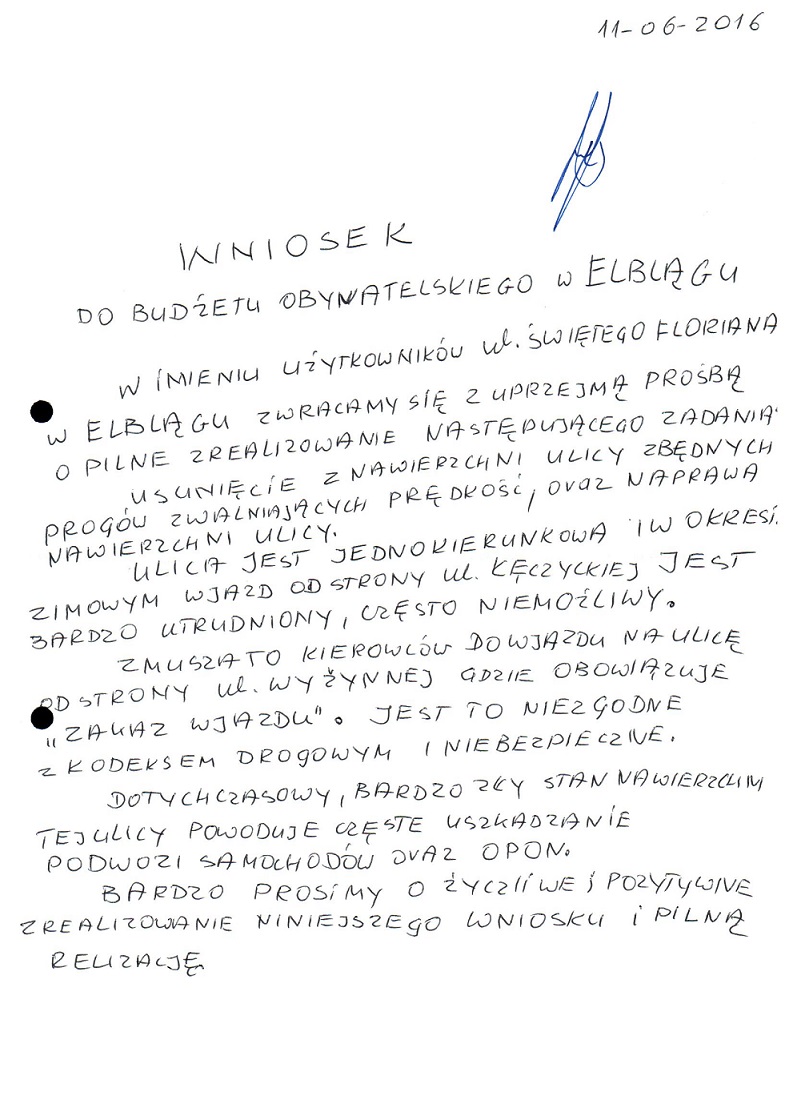 11-06-2016
WNIOSEK
DO BUDŻETU OBYWATELSKIEGO W ELBLĄGU
W IMIENIU UŻYTKOWNIKÓW ul. ŚWIĘTEGO FLORIANA
W ELBLĄGU ZWRACAMY SIĘ Z UPRZEJMĄ PROŚBĄ
O PILNE ZREALIZOWANIE NASTĘPUJĄCEGO ZADANIA:
USUNIĘCIE Z NAWIERZCHNI ULICY ZBĘDNYCH
PROGÓW ZWALNIAJĄCYCH PRĘDKOŚĆ, ORAZ NAPRAWA
NAWIERZCHNI ULICY.
ULICA JEST JEDNOKIERUNKOWA I W OKRESI.
ZIMOWYM WJAZD OD STRONY ul. ŁĘCZYCKIEJ JEST
BARDZO UTRUDNIONY, CZĘSTO NIEMOŻLIWY.
ZMUSZA TO KIEROWCÓW DO WJAZDU NA ULICĘ
OD STRONY ul. WYŻYNNEJ GDZIE OBOWIĄZUJE
"ZAKAZ WJAZDU". JEST TO NIEZGODNE
Z KODEKSEM DROGOWYM I NIEBEZPIECZNE.
DOTYCHCZASOWY, BARDZO ZŁY STAN NAWIERZCHNI
TEJ ULICY POWODUJE CZĘSTE USZKADZANIE
PODWOZI SAMOCHODÓW ORAZ OPON.
BARDZO PROSIMY O ŻYCZLIWE I POZYTYWNE
ZREALIZOWANIE NINIEJSZEGO WNIOSKU I PILNĄ
RELIZACJĘ